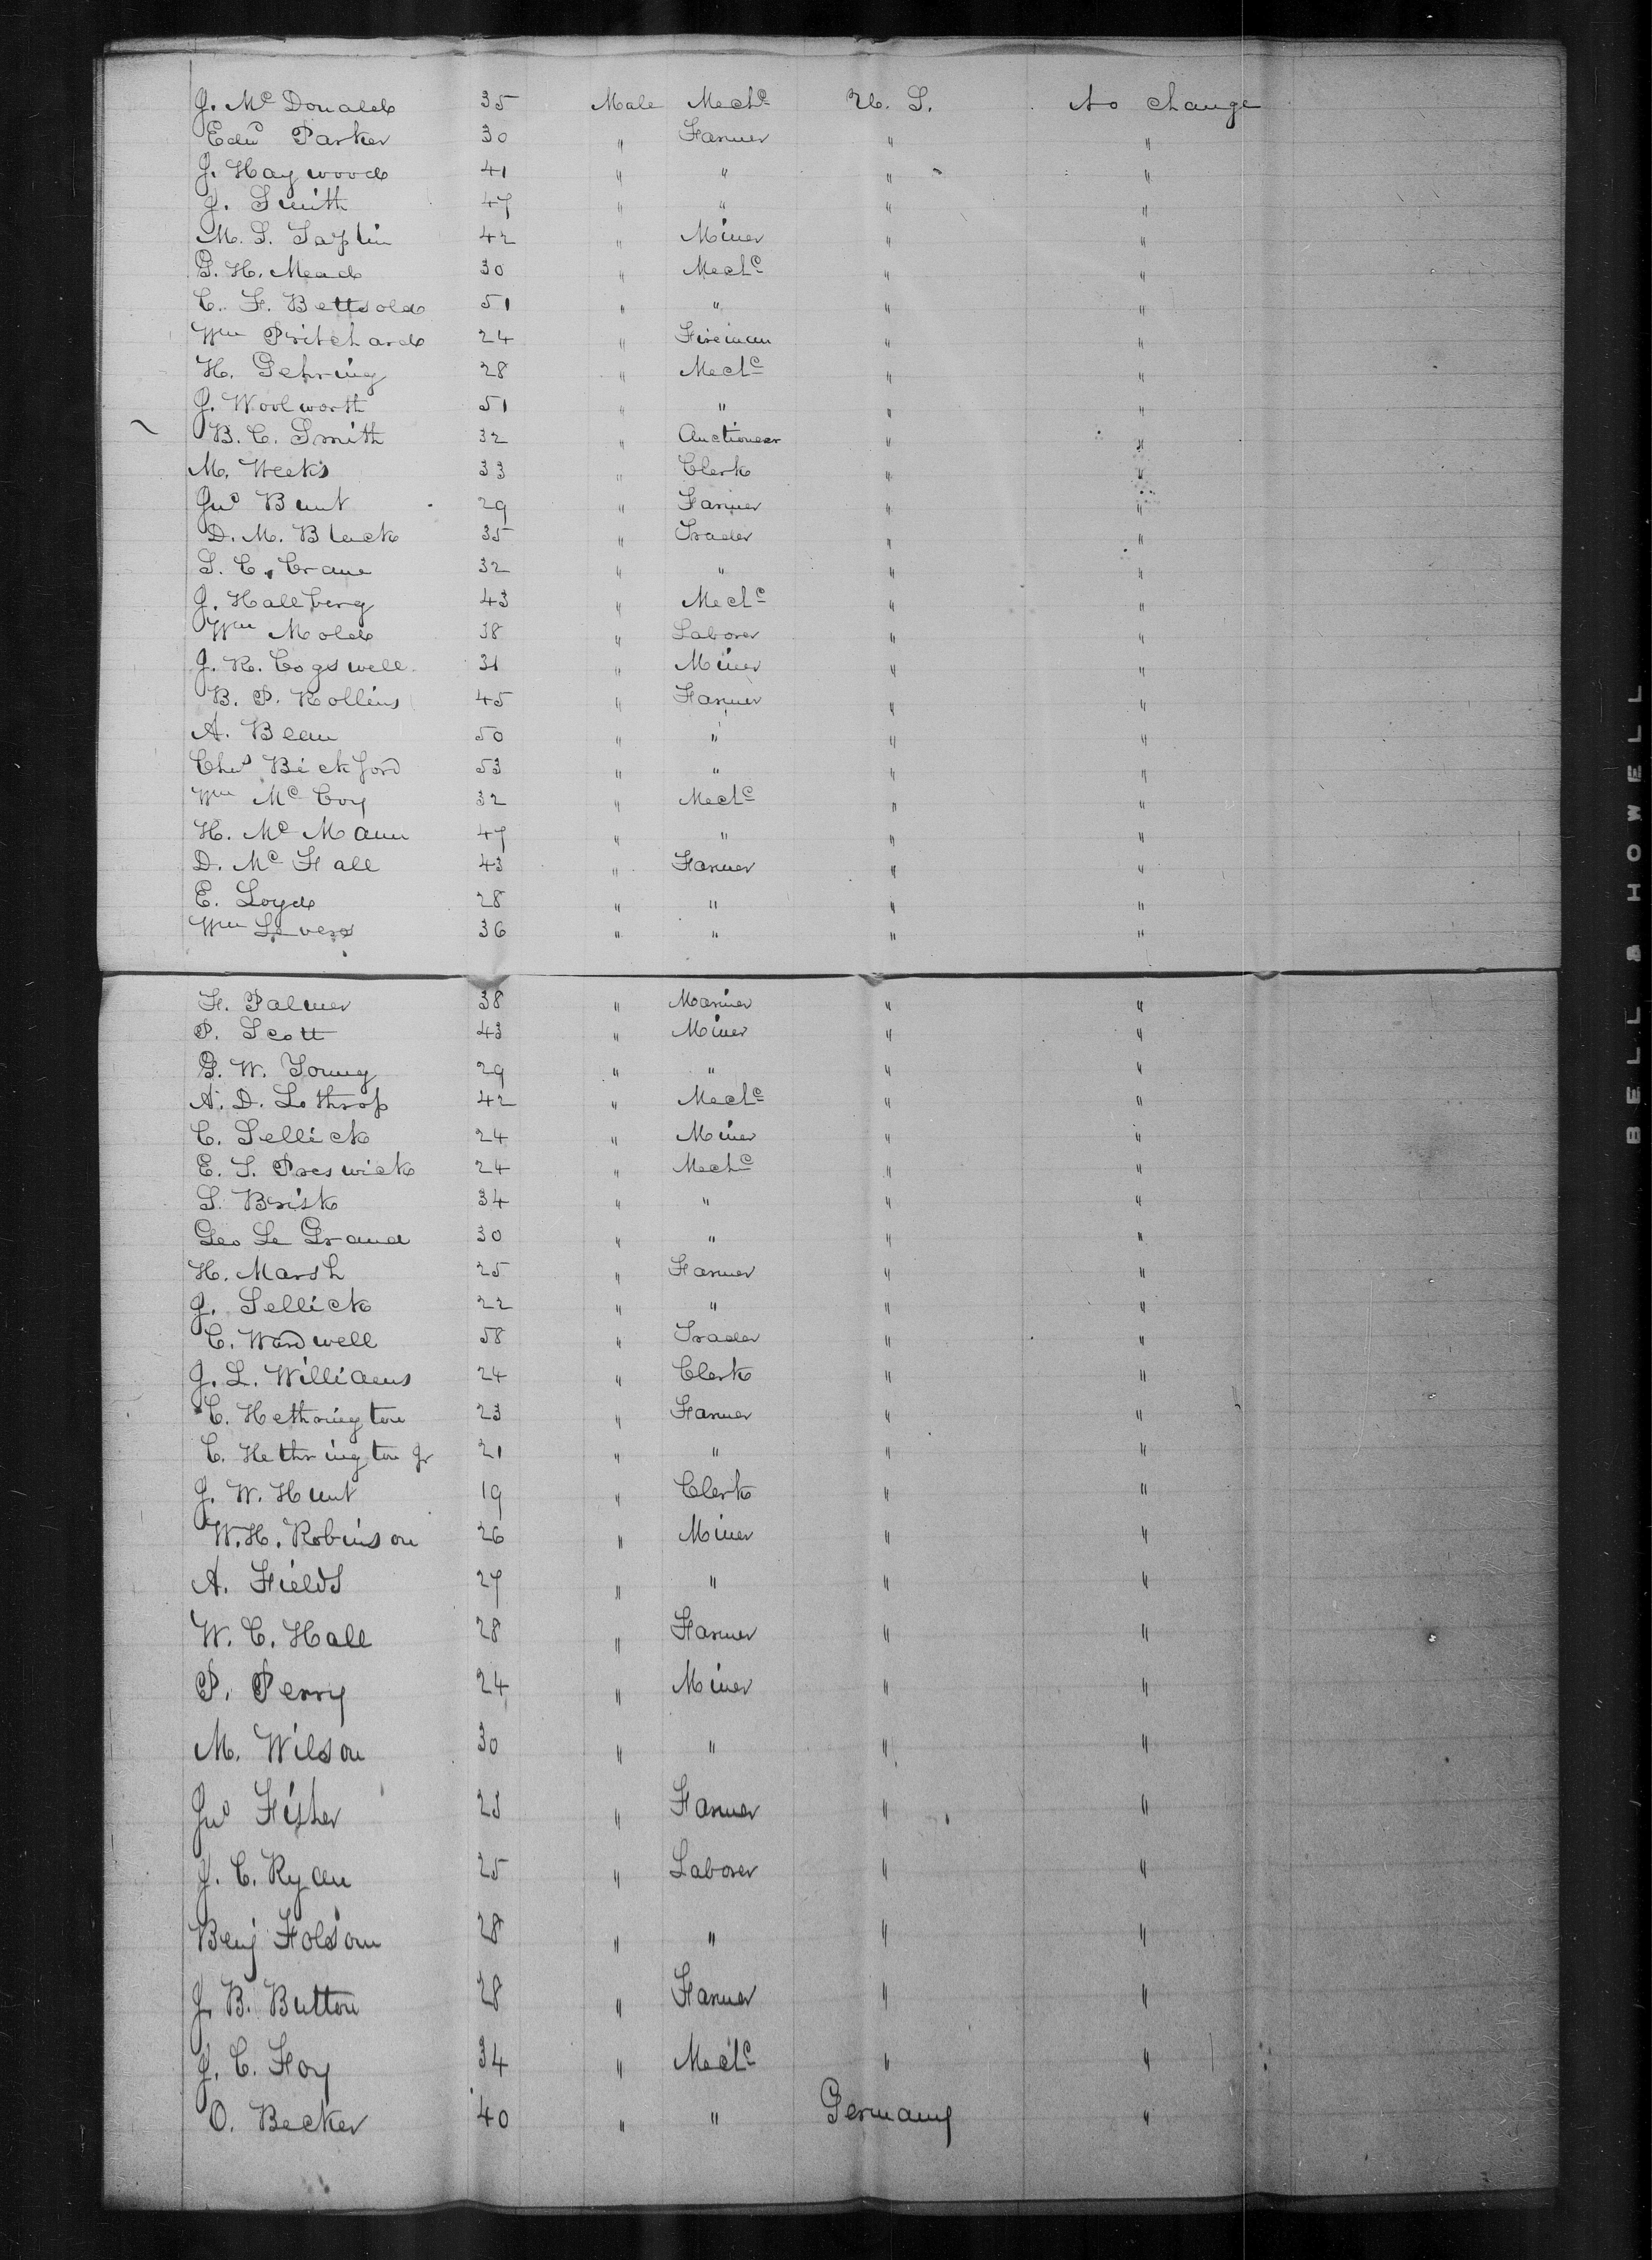 J. Mc Donald 35 Male Mechc U. S. No change
Edwd Parker 30 " Farmer " "
J. Haywood 41 " " " "
J. Smith 47 " " " "
M. S. Taplin 42 " Miner " "
G. H. Mead 30 " Mechc " "
C. F. Bettsold 51 " " " "
Wm Pritchard 24 " Fireman " "
H. Gehring 28 " Mechc " "
J. Woolworth 51 " " " "
B. C. Smith 32 " Auctioneer " "
M. Weeks 33 " Clerk " "
Jno Bunt 29 " Farmer " "
D. M. Black 35 " Trader " "
S. C. Crane 32 " " " "
J. Hallberg 43 " Mechc " "
Wm Mold 38 " Laborer " "
J. R. Cogswell 31 " Miner " "
B. P. Rollins 45 " Farmer " "
A. Bean 50 " " " "
Chas Bickford 53 " " " "
Wm Mc Coy 32 " Mechc " "
H. Mc Mann 47 " " " "
D. Mc Fall 43 " Farmer " "
E. Loyd 28 " " " "
Wm Levers 36 " " " "
F. Palmer 38 " Mariner " "
P. Scott 43 " Miner " "
G. W. Young 29 " " " "
A. D. Lothrop 42 " Mechc " "
C. Sellick 24 " Miner " "
E. S. Preswick 24 " Mechc " "
S. Brisk 34 " " " "
Geo Le Grand 30 " " " "
H. Marsh 25 " Farmer " "
J. Sellick 22 " " " "
C. Wardwell 58 " Trader " "
J. L. Williams 24 " Clerk " "
C. Hethrington 23 " Farmer " "
C. Hethrington Jr 21 " " " "
J. W. Hunt 19 " Clerk " "
W. H. Robinson 26 " Miner " "
A. Fields 27 " " " "
W. C. Hall 28 " Farmer " "
P. Perry 24 " Miner " "
M. Wilson 30 " " " "
Jno Fisher 23 " Farmer " "
J. C. Ryan 25 " Laborer " "
Benj Folsom 28 " " " "
J. B. Button 28 " Farmer " "
J. C. Foy 34 " Mechc " "
O. Becker 40 " " Germany "
BELL & HOWELL